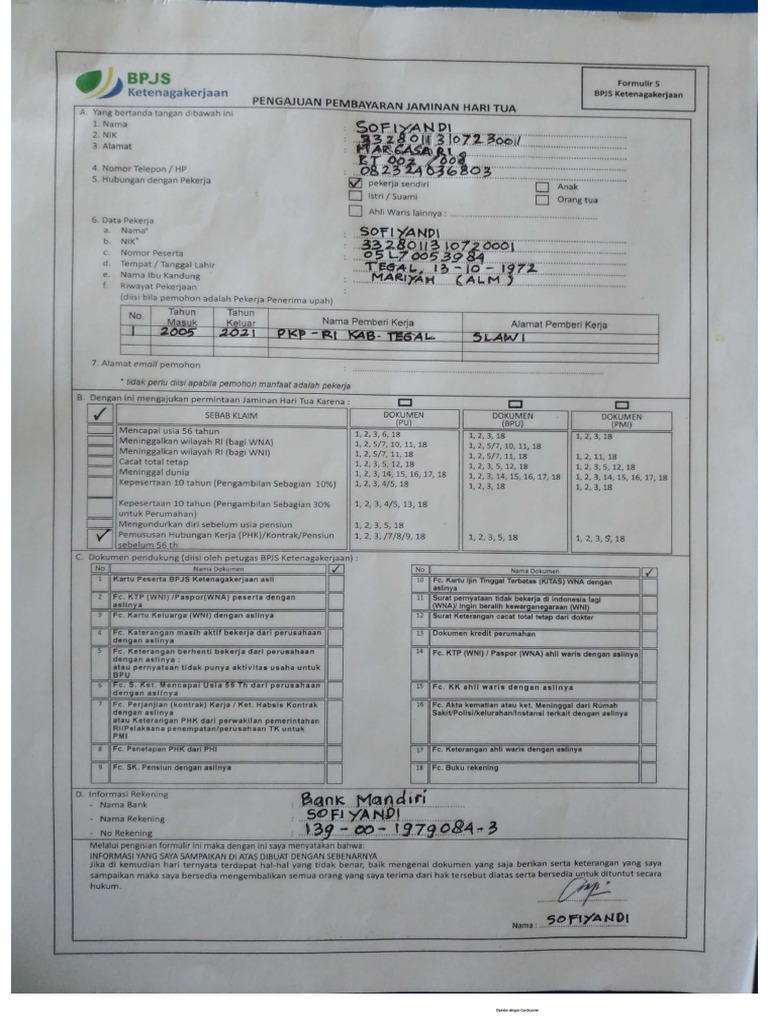 BPJS
Ketenagakerjaan
Formulir 5
BPJS Ketenagakerjaan
PENGAJUAN PEMBAYARAN JAMINAN HARI TUA
A. Yang bertanda tangan dibawah ini
1. Nama : SOFIYANDI
2. NIK : 33280113107230011
3. Alamat : MARGASARI
RT 002 / 008
4. Nomor Telepon / HP : 082324036803
5. Hubungan dengan Pekerja : ✓ pekerja sendiri Anak
Istri / Suami Orang tua
Ahli Waris lainnya :
6. Data Pekerja
a. Nama* : SOFIYANDI
b. NIK* : 3328011310720001
c. Nomor Peserta : 05L70053984
d. Tempat / Tanggal Lahir : TEGAL, 13-10-1972
e. Nama Ibu Kandung : MARIYAH (ALM)
f. Riwayat Pekerjaan :
(diisi bila pemohon adalah Pekerja Penerima upah)
No. Tahun Masuk Tahun Keluar Nama Pemberi Kerja Alamat Pemberi Kerja
1 2005 2021 PKP-RI KAB-TEGAL SLAWI
7. Alamat email pemohon :
* tidak perlu diisi apabila pemohon manfaat adalah pekerja
B. Dengan ini mengajukan permintaan Jaminan Hari Tua Karena :
✓ SEBAB KLAIM DOKUMEN (PU) DOKUMEN (BPU) DOKUMEN (PMI)
Mencapai usia 56 tahun 1, 2, 3, 6, 18 1, 2, 3, 18 1, 2, 3, 18
Meninggalkan wilayah RI (bagi WNA) 1, 2, 5/7, 10, 11, 18 1, 2, 5/7, 10, 11, 18
Meninggalkan wilayah RI (bagi WNI) 1, 2, 5/7, 11, 18 1, 2, 5/7, 11, 18 1, 2, 11, 18
Cacat total tetap 1, 2, 3, 5, 12, 18 1, 2, 3, 5, 12, 18 1, 2, 3, 5, 12, 18
Meninggal dunia 1, 2, 3, 14, 15, 16, 17, 18 1, 2, 3, 14, 15, 16, 17, 18 1, 2, 3, 14, 15, 16, 17, 18
Kepesertaan 10 tahun (Pengambilan Sebagian 10%) 1, 2, 3, 4/5, 18 1, 2, 3, 18 1, 2, 3, 18
Kepesertaan 10 tahun (Pengambilan Sebagian 30% untuk Perumahan) 1, 2, 3, 4/5, 13, 18
Mengundurkan diri sebelum usia pensiun 1, 2, 3, 5, 18
✓ Pemususan Hubungan Kerja (PHK)/Kontrak/Pensiun sebelum 56 th 1, 2, 3, /7/8/9, 18 1, 2, 3, 5, 18 1, 2, 3, 5, 18
C. Dokumen pendukung (diisi oleh petugas BPJS Ketenagakerjaan) :
No Nama Dokumen ✓
1 Kartu Peserta BPJS Ketenagakerjaan asli
2 Fc. KTP (WNI) /Paspor(WNA) peserta dengan aslinya
3 Fc. Kartu Keluarga (WNI) dengan aslinya
4 Fc. Katerangan masih aktif bekerja dari perusahaan dengan aslinya
5 Fc. Keterangan berhenti bekerja dari perusahaan dengan aslinya :
atau pernyataan tidak punya aktivitas usaha untuk BPU
6 Fc. S. Ket. Mencapai Usia 56 Th dari perusahaan dengan aslinya
7 Fc. Perjanjian (kontrak) Kerja / Ket. Habsis Kontrak dengan aslinya
atau Keterangan PHK dari perwakilan pemerintahan RI/Pelaksana penempatan/perusahaan TK untuk PMI
8 Fc. Penetapan PHK dari PHI
9 Fc. SK. Pensiun dengan aslinya
No Nama Dokumen ✓
10 Fc. Kartu Ijin Tinggal Terbatas (KITAS) WNA dengan aslinya
11 Surat pernyataan tidak bekerja di indonesia lagi (WNA)/ Ingin beralih kewarganegaraan (WNI)
12 Surat Keterangan cacat total tetap dari dokter
13 Dokumen kredit perumahan
14 Fc. KTP (WNI) / Paspor (WNA) ahli waris dengan aslinya
15 Fc. KK ahli waris dengan aslinya
16 Fc. Akta kematian atau ket. Meninggal dari Rumah Sakit/Polisi/kelurahan/Instansi terkait dengan aslinya
17 Fc. Keterangan ahli waris dengan aslinya
18 Fc. Buku rekening
D. Informasi Rekening
- Nama Bank : Bank Mandiri
- Nama Rekening : SOFIYANDI
- No Rekening : 139-00-1979084-3
Melalui pengisian formulir ini maka dengan ini saya menyatakan bahwa:
INFORMASI YANG SAYA SAMPAIKAN DI ATAS DIBUAT DENGAN SEBENARNYA
Jika di kemudian hari ternyata terdapat hal-hal yang tidak benar, baik mengenai dokumen yang saja berikan serta keterangan yang saya
sampaikan maka saya bersedia mengembalikan semua orang yang saya terima dari hak tersebut diatas serta bersedia untuk dituntut secara
hukum.
Nama : SOFIYANDI
Dipindai dengan CamScanner